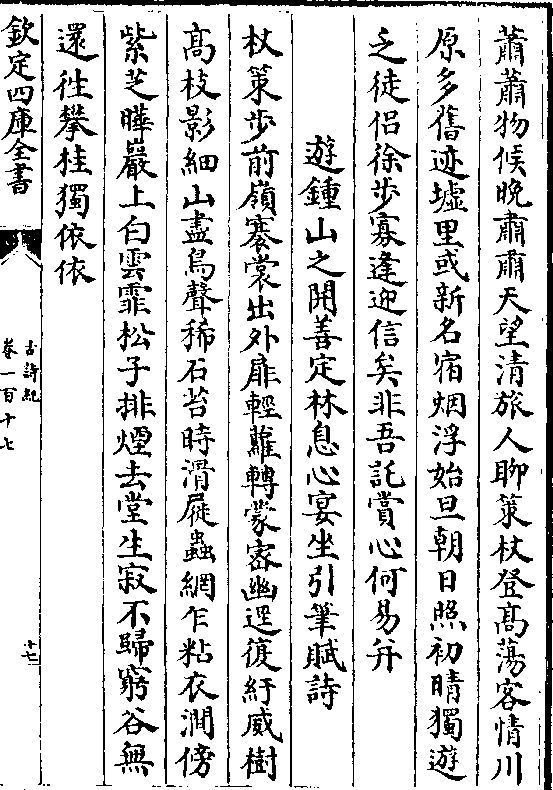 蕭蕭物候晩肅肅天望清旅人聊策杖登髙蕩客情川
原多舊迹墟里或新名宿烟浮始旦朝日照初晴獨遊
乏徒侣徐步寡逢迎信矣非吾託賞心何易并
遊鍾山之開善定林息心宴坐引筆賦詩
杖策步前嶺褰裳出外扉輕蘿轉蒙密幽逕復紆威樹
髙枝影細山盡鳥聲稀石苔時滑屣蟲網乍粘衣澗傍
紫芝曄巖上白雲霏松子排煙去堂生寂不歸窮谷無
還往攀桂獨依依
欽定四庫全書
古詩紀
卷一百十七
十七